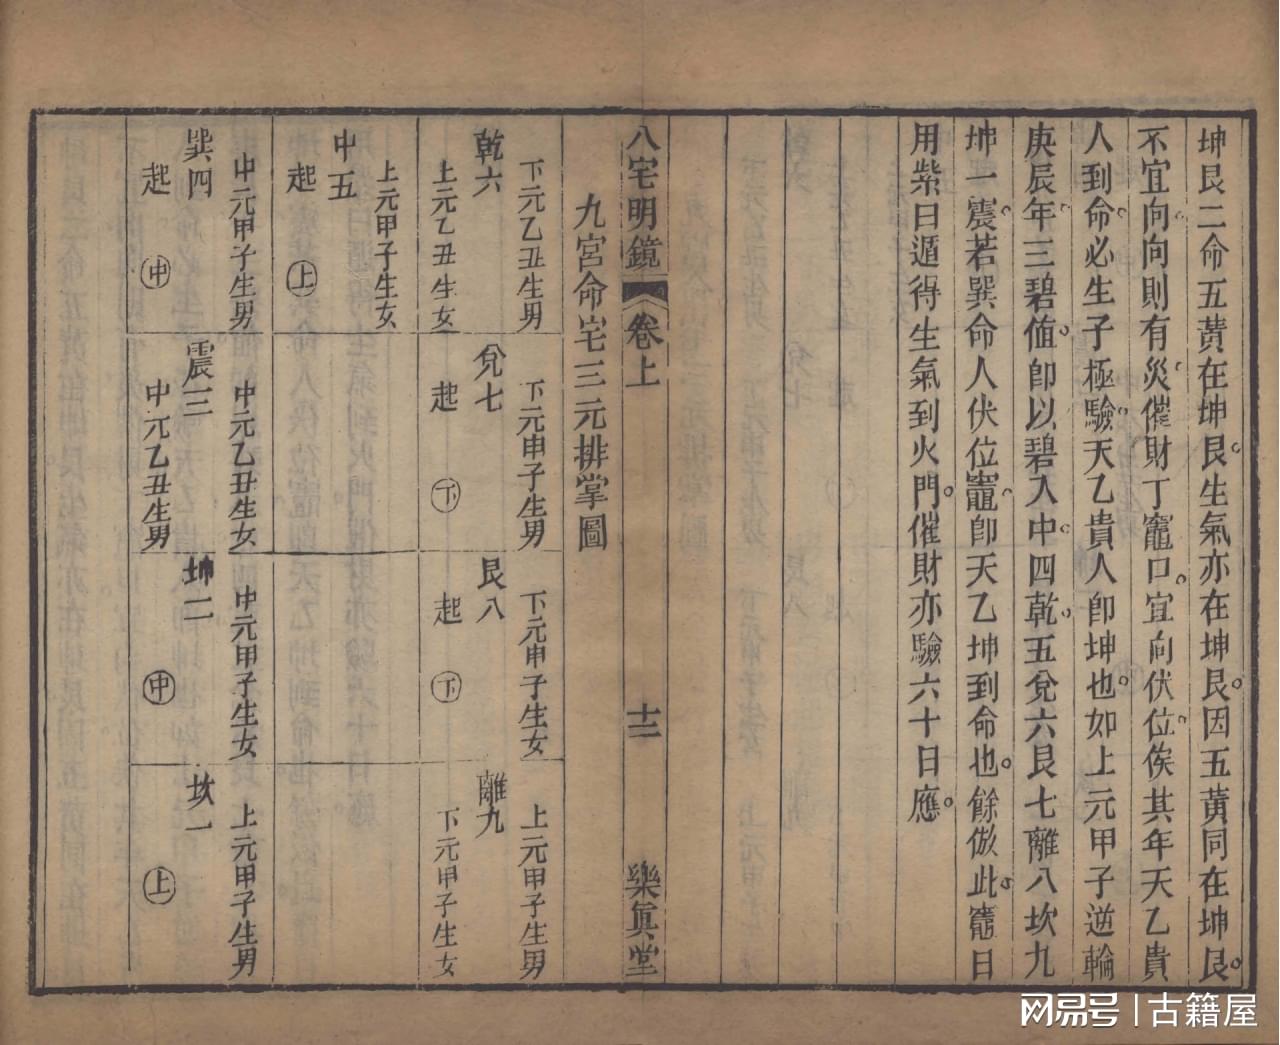 坤艮二命五黃在坤艮生氣亦在坤艮因五黃同在坤艮
不宜向向則有災催財丁竈口宜向伏位俟其年天乙貴
人到命必生子極驗天乙貴人卽坤也如上元甲子逆輪
庚辰年三碧值卽以碧入中四乾五兌六艮七離八坎九
坤一震若巽命人伏位竈卽天乙坤到命也餘倣此竈日
用紫白遁得生氣到火門催財亦驗六十日應
八宅明鏡 卷上 十二 樂眞堂
九宮命宅三元排掌圖
下元乙丑生男
乾六
上元乙丑生女
下元甲子生男
兌七
起 下
下元甲子生女
艮八
起 下
上元甲子生男
離九
下元甲子生女
上元甲子生女
中五
起 上
中元甲子生男
巽四
起 中
中元乙丑生女
震三
中元乙丑生男
中元甲子生女
坤二
中
上元甲子生男
坎一
上
网易号 | 古籍屋